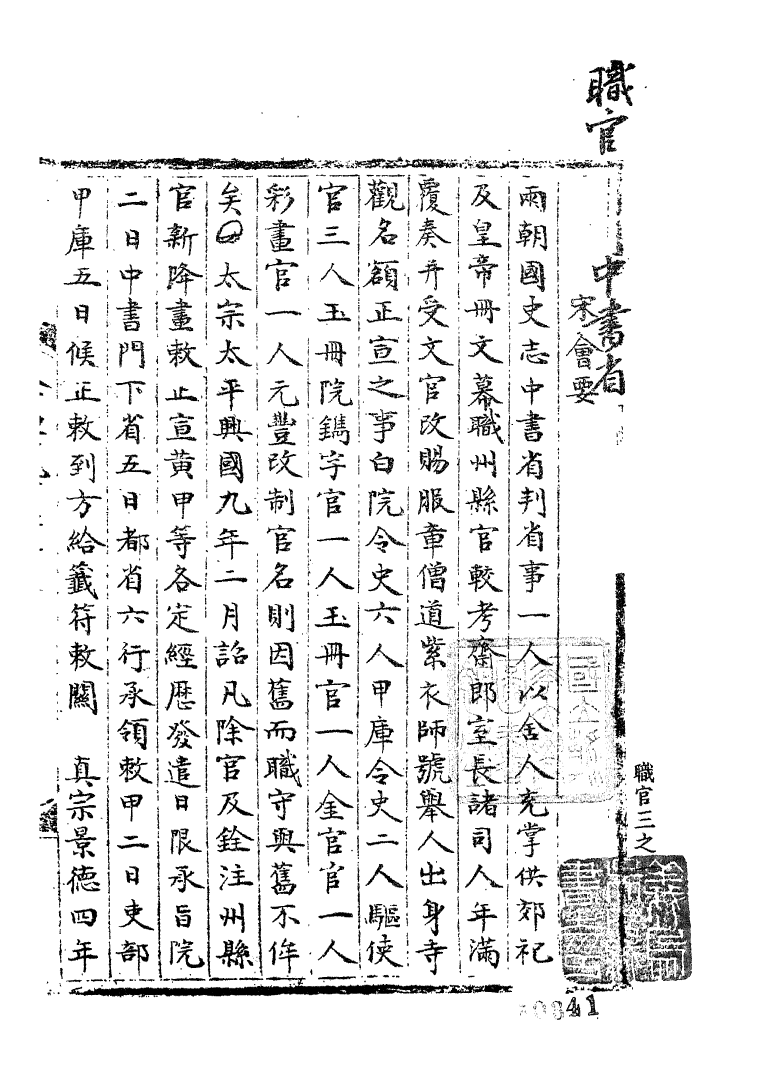 職官
中書省
宋會要
兩朝國史志中書省判省事一人以舍人充掌供郊祀
及皇帝冊文幕職州縣官較考齋郎室長諸司人年滿
覆奏并受文官改賜服章僧道紫衣師號舉人出身寺
觀名額正宣之事白院令史六人甲庫令史二人驅使
官三人玉冊院鐫字官一人玉冊官一人金官官一人
彩畫官一人元豐改制官名則因舊而職守與舊不侔
矣○太宗太平興國九年二月詔凡除官及銓注州縣
官新降畫敕止宣黃甲等各定經歷發遣日限承旨院
二日中書門下省五日都省六行承領敕甲二日吏部
甲庫五日候正敕到方給籤符敕關　真宗景德四年
職官三之
41